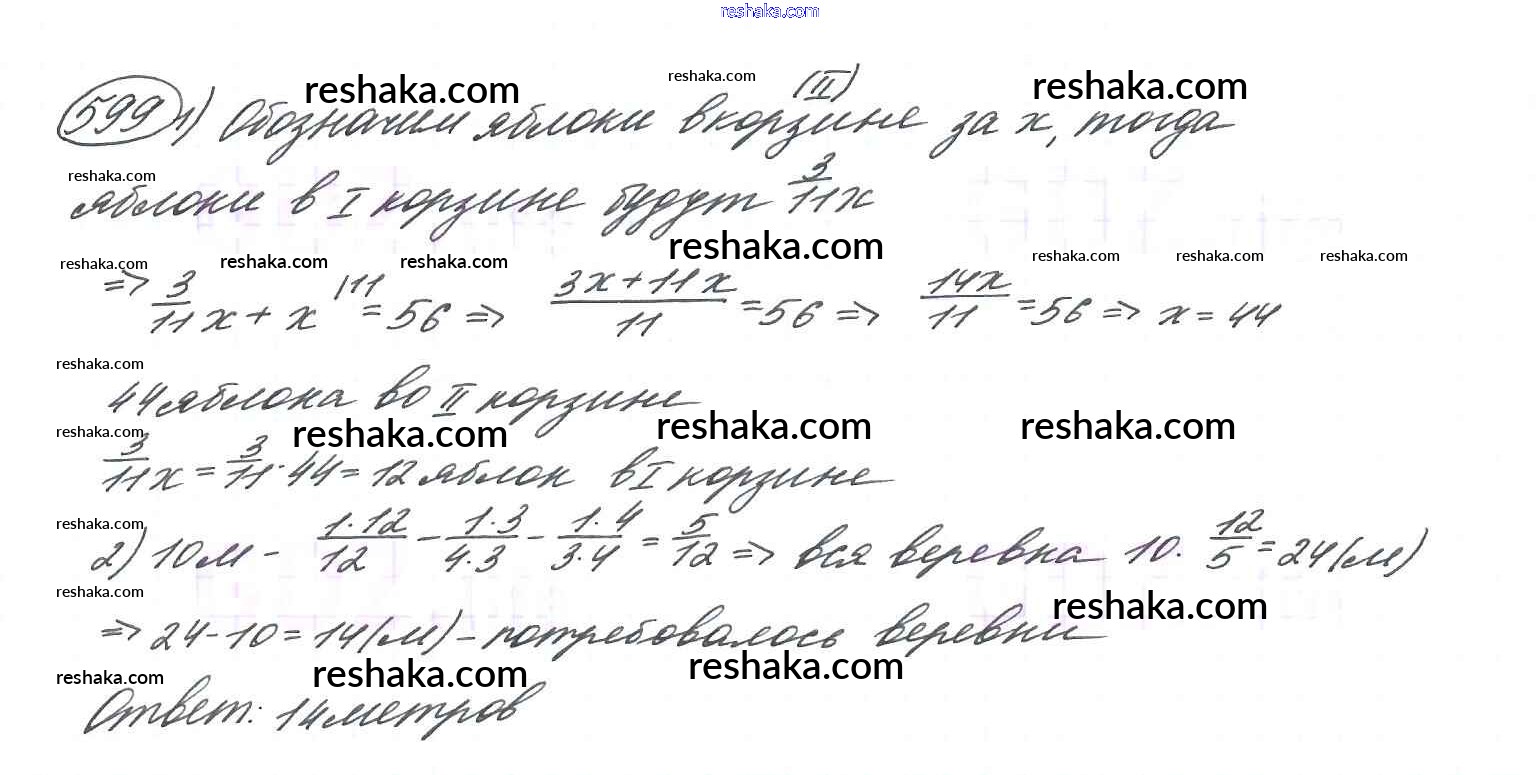 reshaka.com
reshaka.com reshaka.com (II) reshaka.com
599 1) Обозначим яблоки в корзине за x, тогда
reshaka.com
яблоки в I корзине будут 3/11 x
reshaka.com
reshaka.com reshaka.com reshaka.com reshaka.com reshaka.com reshaka.com
=> 3/11 x + x |11 = 56 => (3x+11x)/11 = 56 => 14x/11 = 56 => x = 44
reshaka.com
44 яблока во II корзине
reshaka.com reshaka.com reshaka.com reshaka.com
3/11 x = 3/11 · 44 = 12 яблок в I корзине
reshaka.com
2) 10 м - (1·12)/12 - (1·3)/(4·3) - (1·4)/(3·4) = 5/12 => вся веревка 10 · 12/5 = 24 (м)
reshaka.com reshaka.com
=> 24 - 10 = 14 (м) - потребовалось веревки
reshaka.com reshaka.com reshaka.com
Ответ: 14 метров